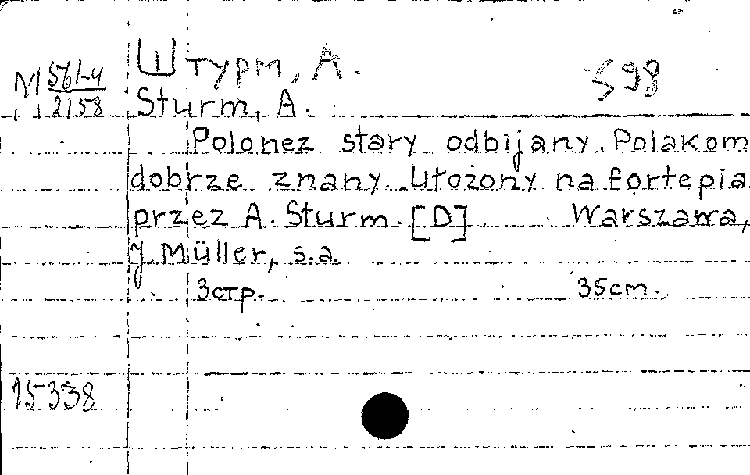 Штурм, А.
М 561-4 / 2158 S 98
Sturm, A.
Polonez stary odbijany. Polakom
dobrze znany. Ułożony na fortepia
przez A. Sturm. [D] Warszawa,
J. Müller, s.a.
3стр. 35cm.
15338